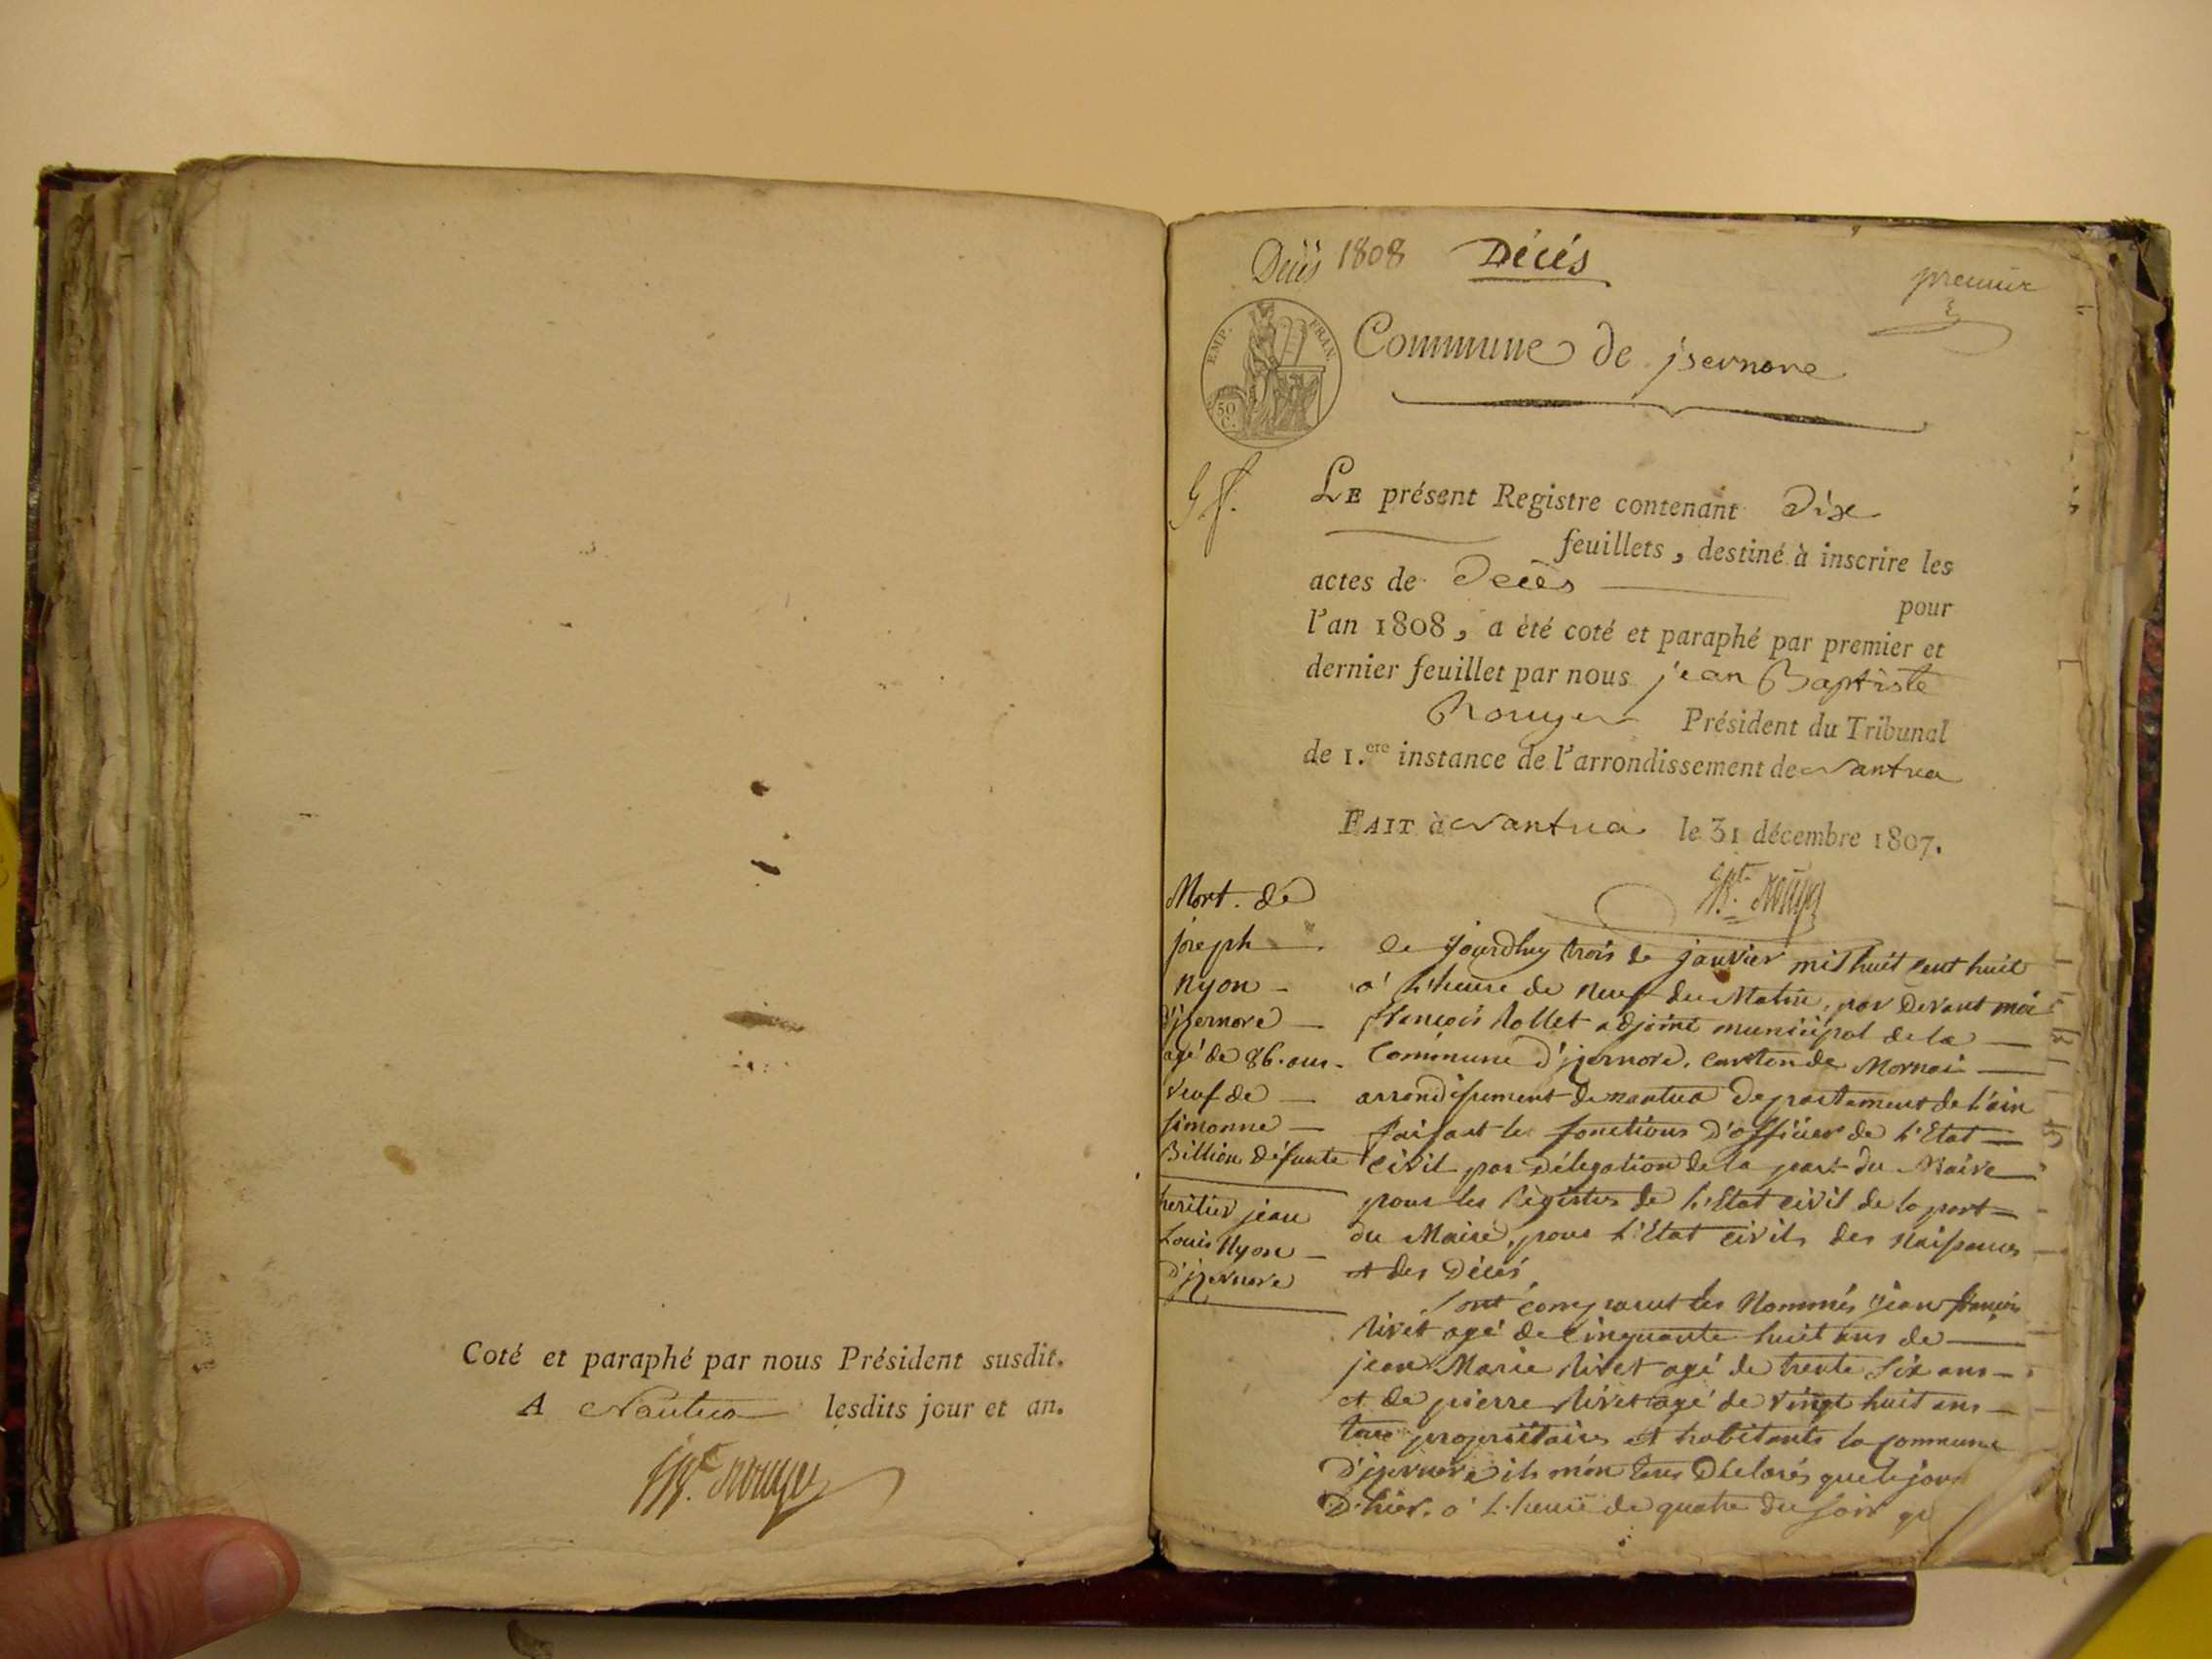 Coté et paraphé par nous Président susdit.
A Nantua lesdits jour et an.
Jn Bte Rouyer
Décès 1808 Décés
premier
EMP. FRAN.
50 C.
Commune de jsernore
LE présent Registre contenant Dix
feuillets, destiné à inscrire les
actes de Décès pour
l'an 1808, a été coté et paraphé par premier et
dernier feuillet par nous jean Baptiste
Rouyer Président du Tribunal
de 1.ere instance de l'arrondissement de Nantua
FAIT à Nantua le 31 décembre 1807.
Rouyer
Mort de
joseph
nyon
d'jzernore
agé de 86 ans
veuf de
simonne
Billion défunte
heritier jean
Louis Nyon
d'jzernore
Le jourdhuy trois de janvier mil huit cent huit
a L'heure de neuf du Matin, par devant moi
françois Rollet adjoint municipal de la
Commune d'jzernore, canton de Mornai
arrondissement de nantua Departement de L'ain
faisant les fonctions d'officier de L'Etat
civil par délégation de la part du Maire
pour les Régistres de L'Etat civil de la part
du Maire, pour L'Etat civil des Naissances
et des Décés
Sont comparut les Nommés jean françois
Nivet agé de cinquante huit ans de
jean Marie Nivet agé de trente six ans
et de pierre Nivet agé de vingt huit ans
tous propriétaires et habitants la commune
d'jzernore ils m'on tous Déclarés que le jour
D'hier, a L'heure de quatre du soir